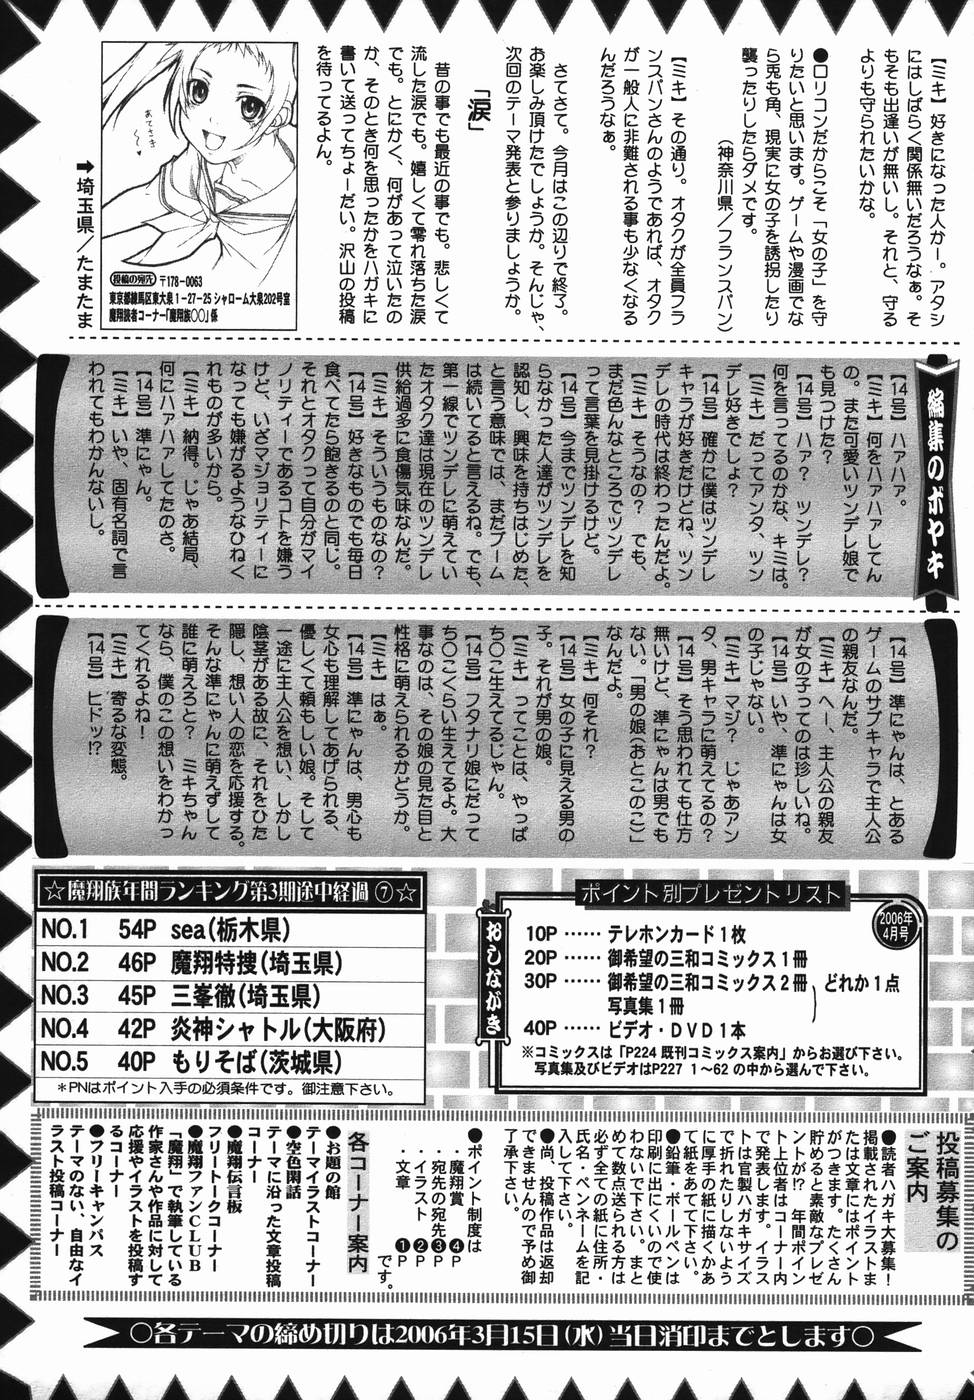 【ミキ】好きになった人かー。アタシ
にはしばらく関係無いだろうなぁ。そ
もそも出逢いが無いし。それと、守る
よりも守られたいかな。
●ロリコンだからこそ「女の子」を守
りたいと思います。ゲームや漫画でな
ら兎も角、現実に女の子を誘拐したり
襲ったりしたらダメです。
（神奈川県／フランスパン）
【ミキ】その通り。オタクが全員フラ
ンスパンさんのようであれば、オタク
が一般人に非難される事も少なくなる
んだろうなぁ。
さてさて。今月はこの辺りで終了。
お楽しみ頂けたでしょうか。そんじゃ、
次回のテーマ発表と参りましょうか。
「涙」
昔の事でも最近の事でも。悲しくて
流した涙でも。嬉しくて零れ落ちた涙
でも。とにかく、何があって泣いたの
か、そのとき何を思ったかをハガキに
書いて送ってちょーだい。沢山の投稿
を待ってるよん。
あてさき
投稿の宛先 〒178-0063
東京都練馬区東大泉1-27-25 シャローム大泉202号室
魔翔読者コーナー「魔翔族〇〇」係
➡埼玉県／たまたま
編集のボヤキ
【14号】ハァハァ。
【ミキ】何をハァハァしてん
の。また可愛いツンデレ娘で
も見つけた？
【14号】ハァ？　ツンデレ？
何を言ってるのかな、キミは。
【ミキ】だってアンタ、ツン
デレ好きでしょ？
【14号】確かに僕はツンデレ
キャラが好きだけどね、ツン
デレの時代は終わったんだよ。
【ミキ】そうなの？　でも、
まだ色んなところでツンデレ
って言葉を見掛けるけど。
【14号】今までツンデレを知
らなかった人達がツンデレを
認知し、興味を持ちはじめた、
と言う意味では、まだブーム
は続いてると言えるね。でも、
第一線でツンデレに萌えてい
たオタク達は現在のツンデレ
供給過多に食傷気味なんだ。
【ミキ】そういうものなの？
【14号】好きなものでも毎日
食べてたら飽きるのと同じ。
それとオタクって自分がマイ
ノリティーであるコトを嫌う
けど、いざマジョリティーに
なっても嫌がるようなひねく
れものが多いから。
【ミキ】納得。じゃあ結局、
何にハァハァしてたのさ。
【14号】準にゃん。
【ミキ】いや、固有名詞で言
われてもわかんないし。
【14号】準にゃんは、とある
ゲームのサブキャラで主人公
の親友なんだ。
【ミキ】へー、主人公の親友
が女の子ってのは珍しいね。
【14号】いや、準にゃんは女
の子じゃない。
【ミキ】マジ？　じゃあアン
タ、男キャラに萌えてるの？
【14号】そう思われても仕方
無いけど、準にゃんは男でも
ない。「男の娘（おとこのこ）」
なんだよ。
【ミキ】何それ？
【14号】女の子に見える男の
子。それが男の娘。
【ミキ】ってことは、やっぱ
ち〇こ生えてるじゃん。
【14号】フタナリ娘にだって
ち〇こくらい生えてるよ。大
事なのは、その娘の見た目と
性格に萌えられるかどうか。
【ミキ】はぁ。
【14号】準にゃんは、男心も
女心も理解してあげられる、
優しくて頼もしい娘。そして
一途に主人公を想い、しかし
陰茎がある故に、それをひた
隠し、想い人の恋を応援する。
そんな準にゃんに萌えずして
誰に萌えろと？　ミキちゃん
なら、僕のこの想いをわかっ
てくれるよね！
【ミキ】寄るな変態。
【14号】ヒドッ!?
☆魔翔族年間ランキング第3期途中経過⑦☆
NO.1　54P　sea（栃木県）
NO.2　46P　魔翔特捜（埼玉県）
NO.3　45P　三峯徹（埼玉県）
NO.4　42P　炎神シャトル（大阪府）
NO.5　40P　もりそば（茨城県）
＊PNはポイント入手の必須条件です。御注意下さい。
ポイント別プレゼントリスト
2006年
4月号
おしながき
10P …… テレホンカード1枚
20P …… 御希望の三和コミックス1冊
30P …… 御希望の三和コミックス2冊
写真集1冊
どれか1点
40P …… ビデオ・DVD1本
※コミックスは「P224 既刊コミックス案内」からお選び下さい。
写真集及びビデオはP227 1～62の中から選んで下さい。
投稿募集の
ご案内
●読者ハガキ大募集！
掲載されたイラストま
たは文章にはポイント
がつきます。たくさん
貯めると素敵なプレゼ
ントが!?　年間ポイン
ト上位者はコーナー内
で発表します。イラス
トは官製ハガキサイズ
で折れたりしないよう
に厚手の紙に描くかあ
て紙をあてて下さい。
●鉛筆・ボールペンは
印刷に出にくいので使
わないで下さい。まと
めて数点送られる方は
必ず全ての紙に住所・
氏名・ペンネームを記
入して下さい。
●尚、投稿作品は返却
できませんので予め御
了承下さい。
●ポイント制度は
・魔翔賞　❹P
・宛先の宛先❸P
・イラスト　❷P
・文章　❶P
です。
各コーナー案内
●お題の館
テーマイラストコーナー
●空色閑話
テーマに沿った文章投稿
コーナー
●魔翔伝言板
フリートークコーナー
●魔翔ファンCLUB
「魔翔」で執筆している
作家さんや作品に対して
応援やイラストを投稿す
るコーナー
●フリーキャンパス
テーマのない、自由なイ
ラスト投稿コーナー
○各テーマの締め切りは2006年3月15日（水）当日消印までとします○